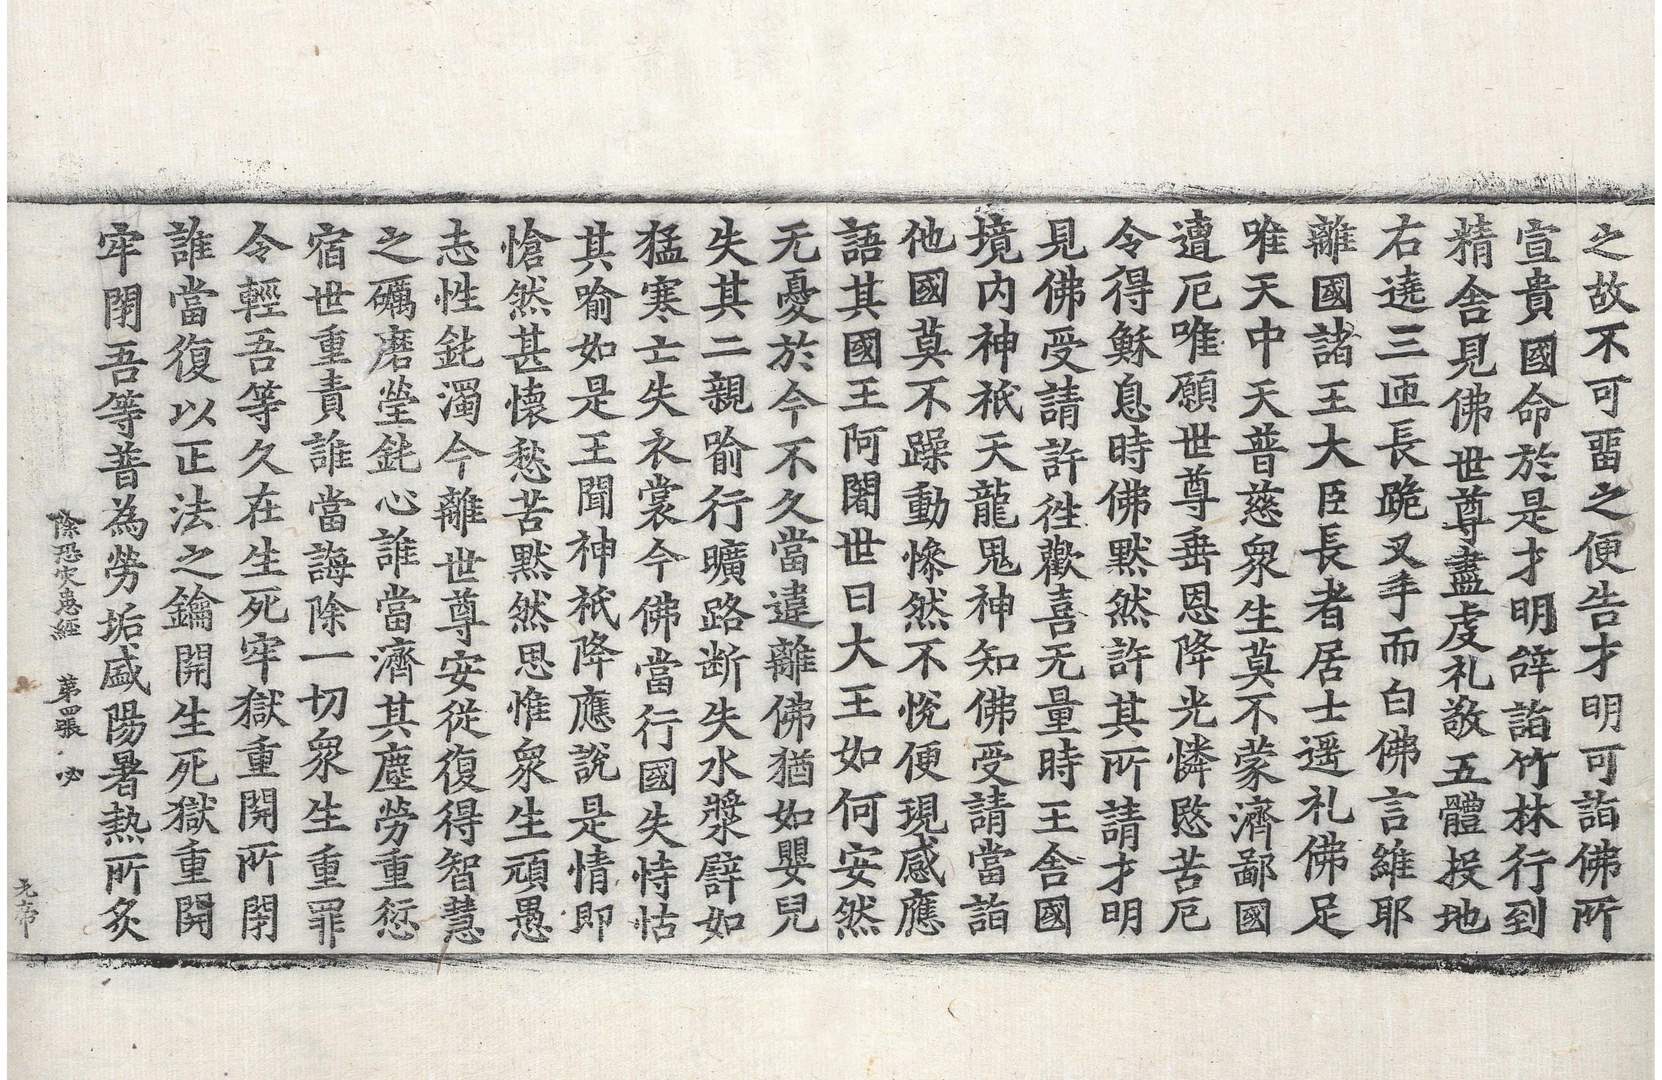 之故不可畱之便告才明可詣佛所
宣貴國命於是才明辝詣竹林行到
精舍見佛世尊盡虔礼敬五體投地
右遶三匝長跪叉手而白佛言維耶
離國諸王大臣長者居士遥礼佛足
唯天中天普慈衆生莫不蒙濟鄙國
遭厄唯願世尊垂恩降光憐愍苦厄
令得穌息時佛默然許其所請才明
見佛受請許徃歡喜无量時王舍國
境内神祇天龍鬼神知佛受請當詣
他國莫不躁動慘然不恱便現感應
語其國王阿闍世曰大王如何安然
无憂於今不久當違離佛猶如嬰兒
失其二親喻行曠路断失水漿辟如
猛寒士失衣裳今佛當行國失恃怙
其喻如是王聞神祇降應說是情即
愴然甚懷愁苦默然思惟衆生頑愚
志性鈍濁今離世尊安從復得智慧
之礪磨瑩鈍心誰當濟其塵勞重愆
宿世重責誰當誨除一切衆生重罪
令輕吾等久在生死牢獄重開所閇
誰當復以正法之鑰開生死獄重開
牢閇吾等普為勞垢盛陽暑熱所炙
除恐灾患經　第四張　必